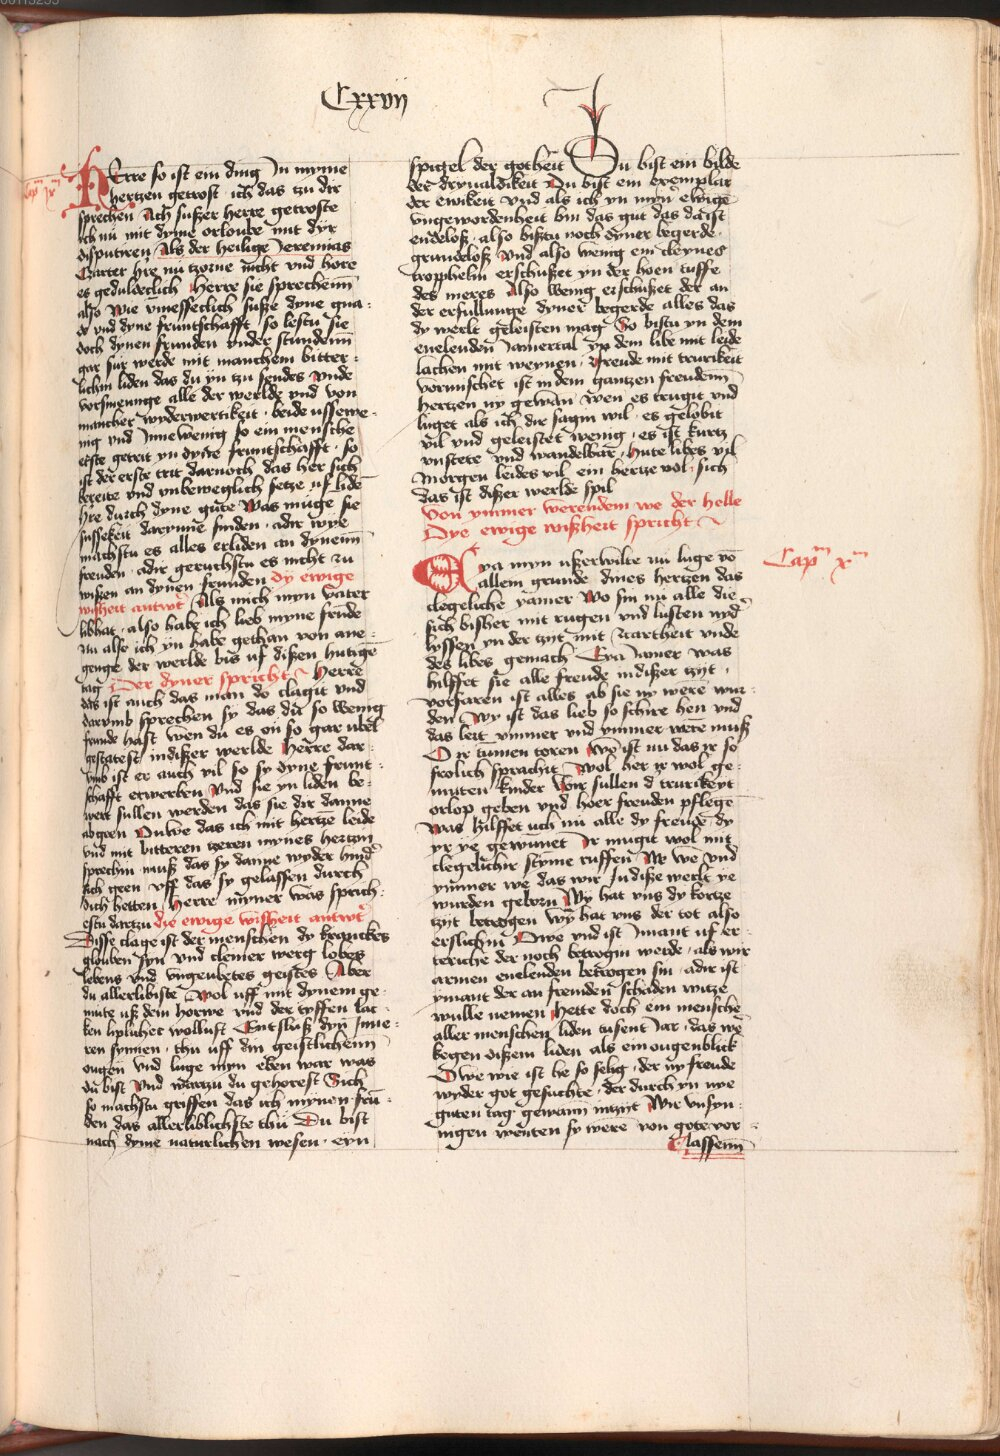 Cxxvij
Capm ix
HErre so ist ein ding Jn myme
hertzen getrost ich das zu dir
sprechen Ach sußer herre getroste
ich nu mit dyme orloube mit dyr
disputiren Als der heilige Jeremias
Czarter hre nu tzorne nicht vnd hore
es geduldeclich Herre sie sprechenn
also Wie vnmesseclich suße dyne gna-
de vnd dyne fruntschafft so lestu sie
doch dynen frunden vnder stundenn
gar sur werde mit manchem bitter-
lichin liden das du yn tzu sendes vnde
vorsmeunge alle der werlde vnd von
mancher wyderwertikeit beide usßewe-
nig vnd Jnnewenig so ein mensche
erste getrit yn dyne fruntschafft so
ist der erste trit darnoch das her sich
bereite vnd vnbeweglich setze uf lide
hre durch dyne gute Was muge sie
sussekeit darynne finden adir wye
machstu es alles erliden an dynenn
freuden adir geruchstu es nicht zu
wißen an dynen frunden dy ewige
wißheit antwt Als mich myn vater
libhat also habe ich lieb myne frude
Nu also ich yn habe gethan von ane-
genge der werlde bis uf dißen hutige
tag Der dyner spricht Herre
das ist auch das man do clagit vnd
darvmb sprechen sy das du so wenig
frunde hast wen du es on so gar ubel
gestatest indißer werlde Herre dar-
vmb ist er auch vil so sy dyne frunt-
schafft erwerben Vnd sie yn liden be-
wert sullen werden das sie dir danne
abgeen Ouwe das ich mit hertze leide
vnd mit bitteren tzeren mynes hertzin
sprechin muß das sy danne wyder hind
sich geen vff das sy gelassen durch
dich hetten Herre myner was sprich-
estu dartzu die ewige wißheit antwt
Disse clage ist der menschen dy kranckes
glouben syn vnd cleiner werg lobes
lebens vnd vngeubetes geistes Aber
du allerlibiste Wol uff mit dynem ge-
mute uß dem horwe vnd der tyffen lac-
ken liplicher wollust Entsluß dyn Jnne-
ren synnen thu uff din geistlichenn
ougen vnd luge myn eben war was
du bist Vnd wartzu du gehorest Sich
so machstu griffen das ich mynen frū-
den das allerliblichste thu Du bist
nach dyme naturlichen wesen eyn
spigel der gotheit Du bist ein bilde
der dryualdikeit Du bist ein exemplar
der ewikeit Vnd als ich yn myn ewige
vngewordenheit bin das gut das da ist
endeloß also bistu noch dyner begerde
grundeloß Vnd also wenig ein cleynes
tropphelin erschußet yn der hoen tuffe
des meres Also wenig erschußet dir an
der erfullunge dyner begerde alles das
dy werlt geleisten mag So bistu yn dem
enelenden Jamertal yn dem libe mit leide
lachen mit weynen freude mit trurikeit
vormischet ist in dem gantzen freudenn
hertzen ny gewan wen es trugit vnd
luget als ich dir sagin wil es gelobit
vil vnd geleistet wenig es ist kurtz
vnstete vnd wandelbar hute libes vil
Morgen leides vil ein hertze vol sich
das ist dißer werlde spil
Von ymmer werendem we der helle
Dye ewige wißheit spricht
Capm xm
Eya myn ußerwilte nu luge vō
allem grunde dines hertzen das
clegeliche yamer Wo sin nu alle die
sich bisher mit rugen vnd lusten nyd
lyssen yn der tzyt mit Zartheit vnde
des libes gemach Eya Jamer was
hilffet sie alle freude indißer tzyt
vorfaren ist alles ab sie ny were wur-
den Wy ist das lieb so schire hen vnd
das leit ymmer vnd ymmer were muß
O ir tummen toren wo ist nu das ir so
frolich sprachit Wol her ir wol ge-
muten kinder Wir sullen d trurikeyt
orlop geben vnd hoer freuden pflege
Was hilffet uch nu alle dy freude dy
yr ye gewunnet Ir mugit wol mit
clegelichir styme ruffen We we vnd
ymmer we das wir Jn diße werlt ye
wurden geborn Wy hat vns dy kortze
tzyt betrogen wy hat vns der tot also
erslichin Owe vnd ist ymant uf er-
teriche der noch betrogin werde als wir
armen enelenden betrogen sin adir ist
ymant der an fremden schaden witze
wulle nemen Hette doch ein mensche
aller menschen liden tusent Jar das we
kegen dißem liden als ein ougenblick
Owe wie ist he so selig der ny freude
wyder got gesuchte der durch yn nye
guten tag gewann in tzyt Wir vnsyn-
nigen wenten sy were von gote vor-
lassenn